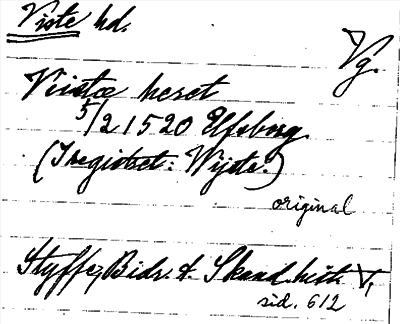 Viste hd.
Vg.
Viistæ heret
5/2 1520 Elfsborg.
(I registret: Wijste.)
original
Styffe, Bidr. t. Skand. hist. V,
sid. 612